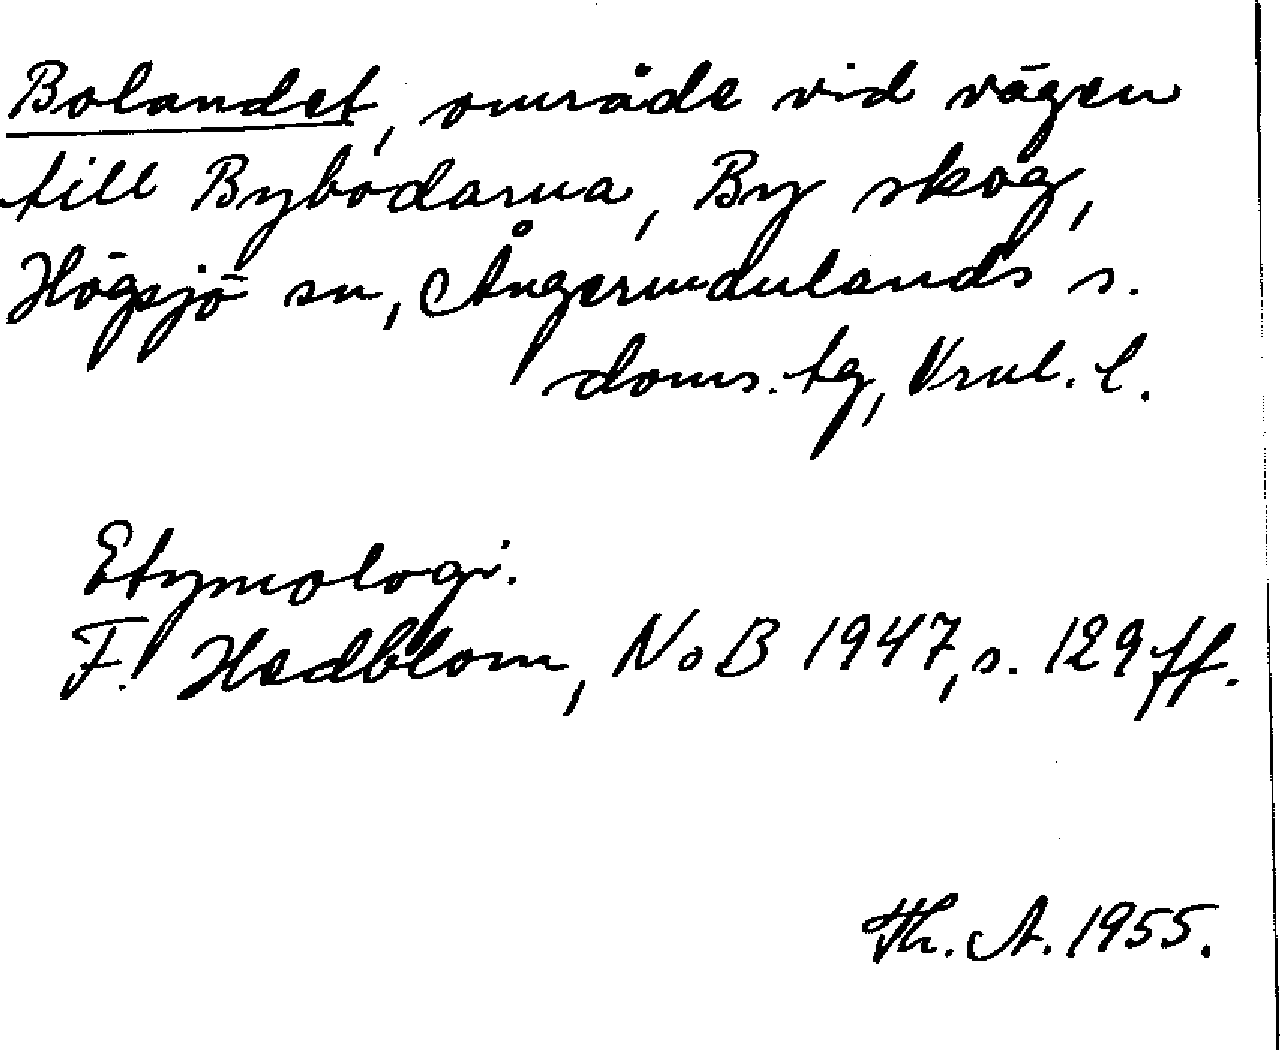 Bolandet, område vid vägen
till Bybodarna, By skog,
Högsjö sn, Ångermanlands s.
doms. tg, Vrnl. l.
Etymologi.
F. Hedblom, NoB 1947, s. 129 ff.
Th. A. 1955.